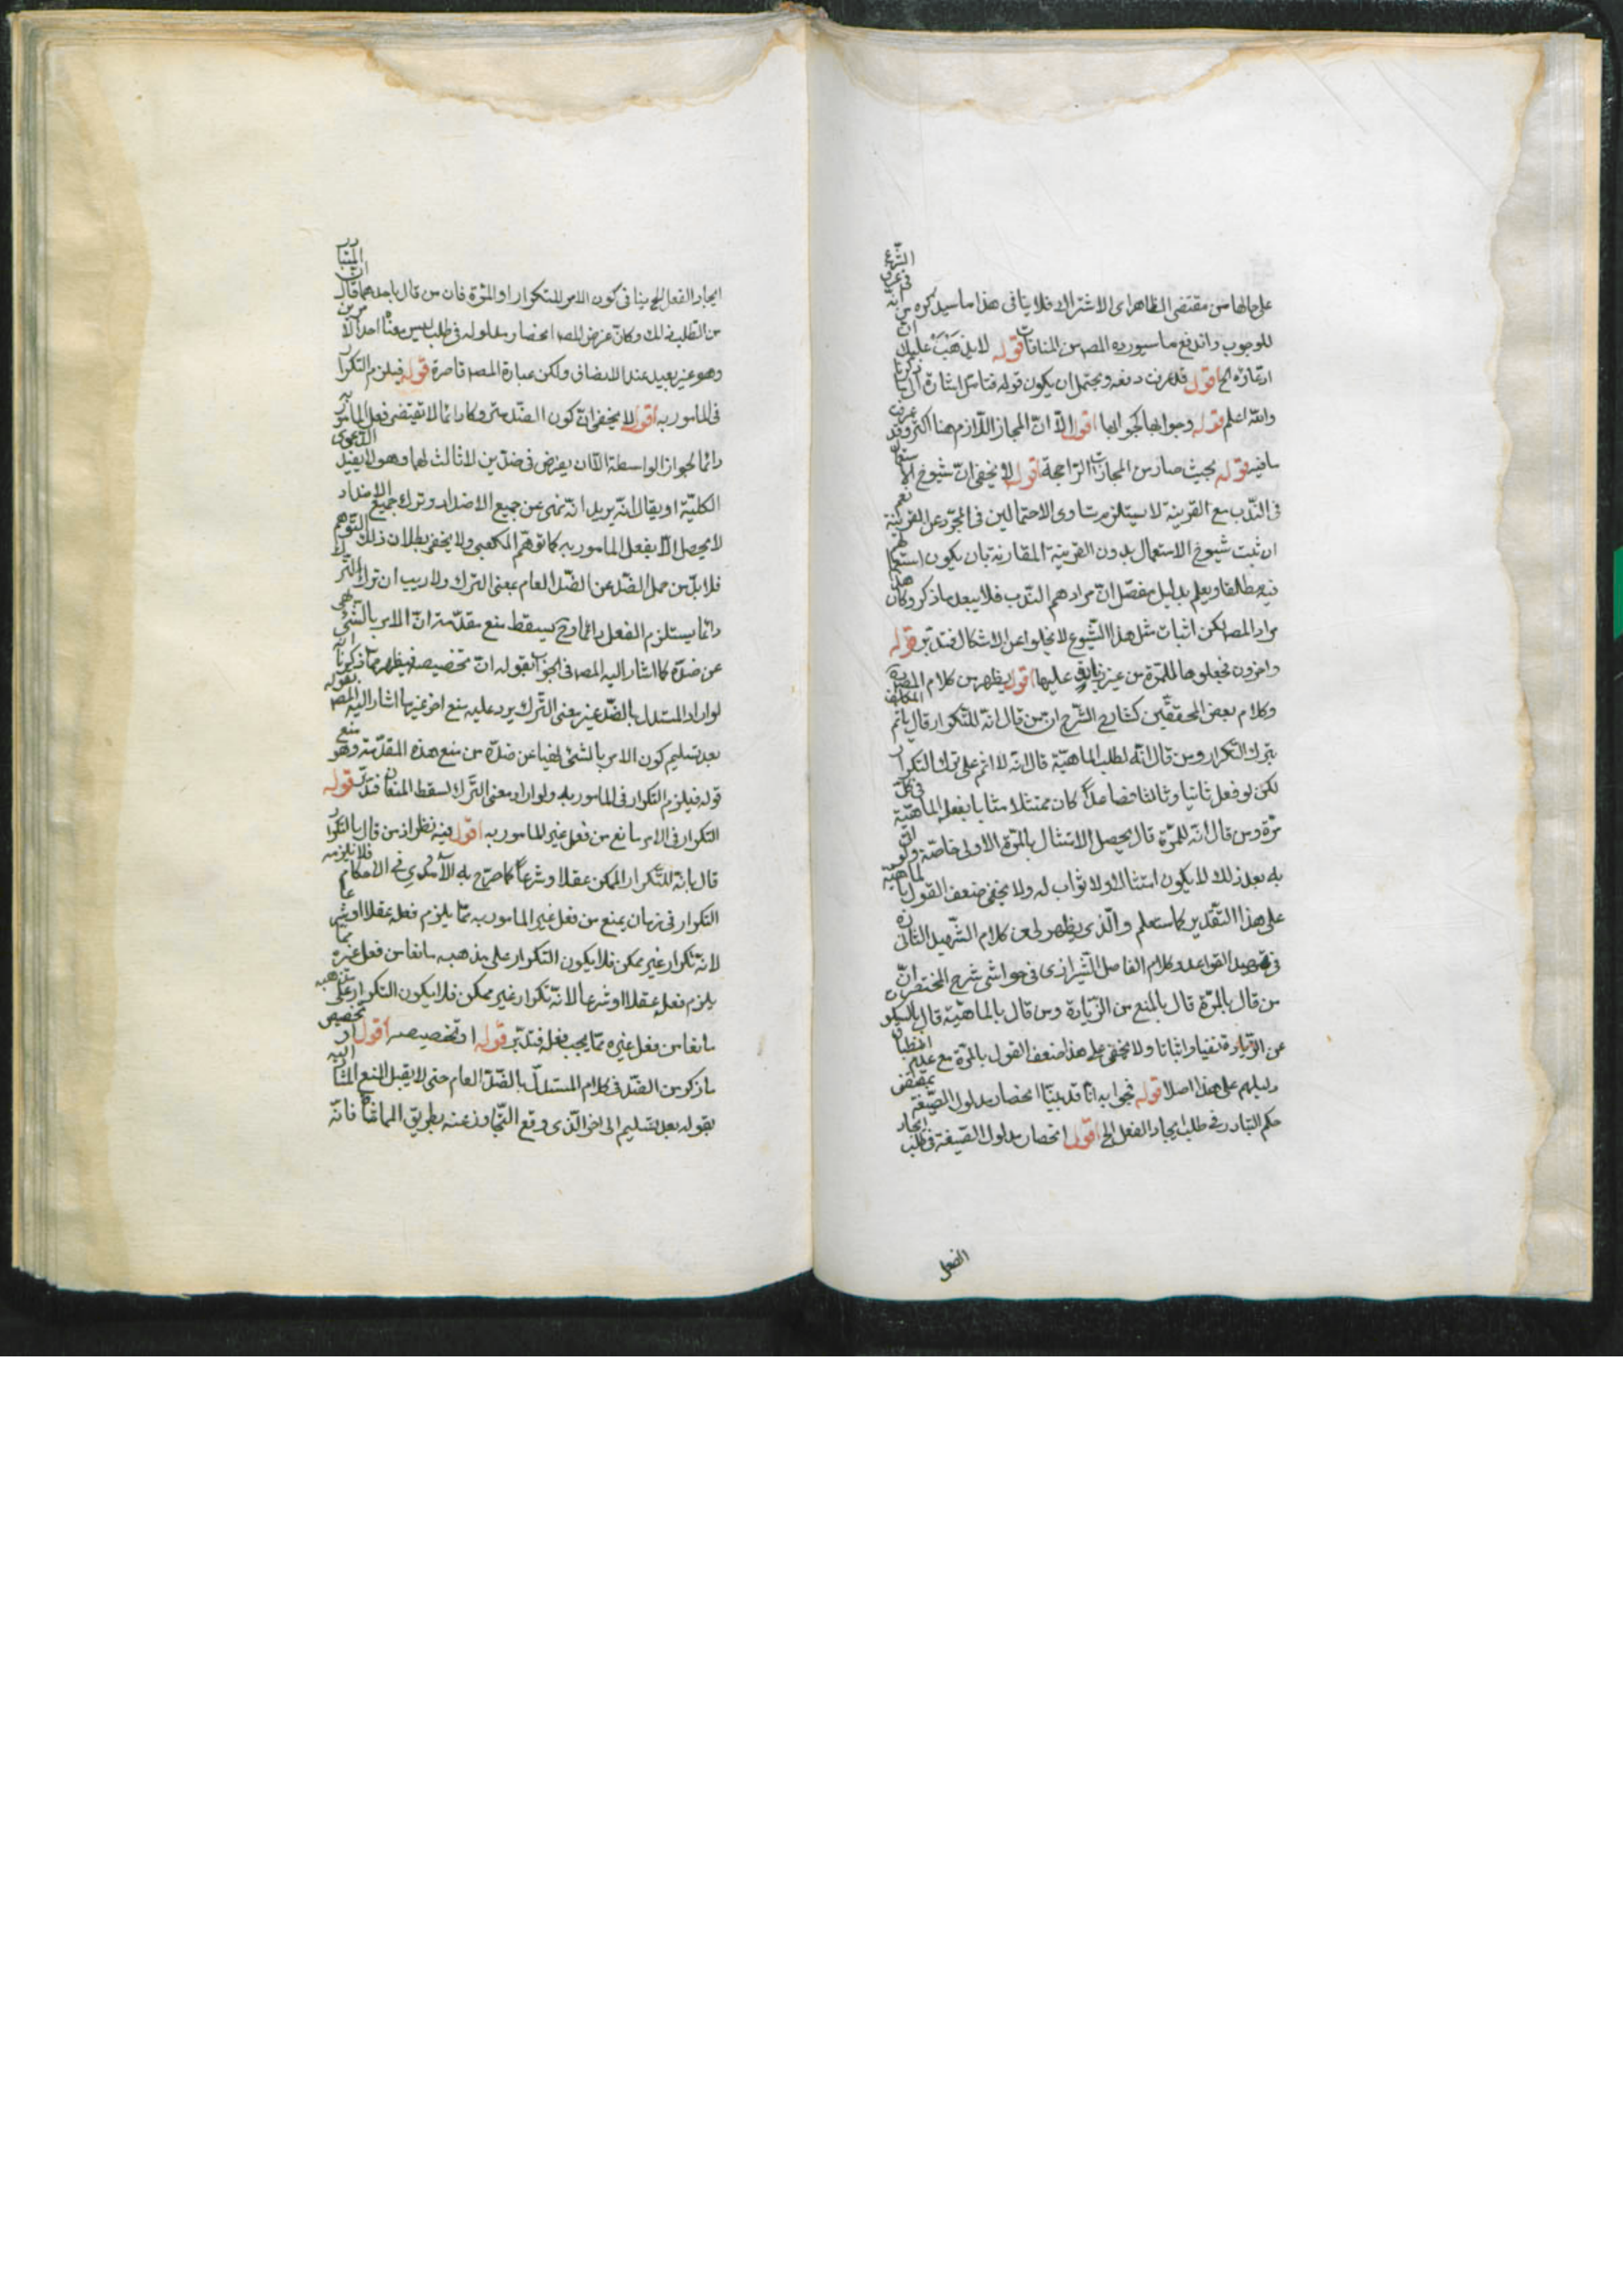 على حالها من مقتضى الظاهر اى الاشتراك فلا ينافى هذا ما سيذكره من انه فى عرف الشرع
للوجوب واندفع ما سيورده المصـ من المنافات قوله لا يذهب عليك ان
ادعاؤه الخ اقول قد عرفت دفعه ويحتمل ان يكون قوله فتامل اشارة الى ما ذكرنا
والله اعلم قوله وجوابها كجوابها اقول الا ان المجاز اللازم هنا اكثر وقد عرفت
ما فيه قوله بحيث صار من المجازات الراجحة اقول لا يخفى ان شيوع الاستعمال
فى الندب مع القرينة لا يستلزم تساوى الاحتمالين فى المجرد عن القرينة نعم
ان ثبت شيوع الاستعمال بدون القرينة المقارنة بان يكون استعمالهم
فيه مطلقا ويعلم بدليل منفصل ان مرادهم الندب فلا يبعد ما ذكر وكان هذا
مراد المصـ لكن اثبات مثل هذا الشيوع لا يخلو عن الاشكال فتدبر قوله
واخرون فجعلوها للمرة من غير زيادة عليها اقول يظهر من كلام المصـ
وكلام بعض المحققين كشارح الشرح ان من قال انه للتكرار قال ياثم المكلف
بترك التكرار ومن قال انه لطلب الماهية قال انه لا اثم على ترك التكرار
لكن لو فعل ثانيا وثالثا فصاعدا كان ممتثلا مثابا بفعل الماهية فى كل
مرة ومن قال انه للمرة قال يحصل الامتثال بالمرة الاولى خاصة ولو اتى
به بعد ذلك لا يكون امتثالا ولا ثواب له ولا يخفى ضعف القول بالماهية
على هذا التقدير كما ستعلم والذى يظهر لى من كلام الشهيد الثانى ره
فى تمهيد القواعد وكلام الفاضل الشيرازى فى حواشى شرح المختصر ان
من قال بالمرة قال بالمنع من الزيادة ومن قال بالماهية قال بالسكوت
عن الزيارة نفيا واثباتا ولا يخفى على هذا ضعف القول بالمرة مع عدم انطباق
دليلهم على هذا اصلا قوله فجوابه انا قد بينا انحصار مدلول الصيغة بمقتضى
حكم التبادر فى طلب ايجاد الفعل الخ اقول انحصار مدلول الصيغة فى طلب ايجاد
الفعل
ايجاد الفعل الخ ينافى كون الامر للتكرار او المرة فان من قال باحدهما قال ان المتبادر
من الطلب ذلك وكان غرض المصـ انحصار مدلوله فى طلب ليس معه احد الامرين
وهو غير بعيد عند الانصاف ولكن عبارة المصـ قاصرة قوله فيلزم التكرار
فى المامور به اقول لا يخفى ان كون الضد متروكا دائما لا تقتضى فعل المامور به
دائما لجواز الواسطة الا ان يفرض فى ضدين لا ثالث لهما وهو لا يفيد الدعوى
الكلية او يقال انه يريد انه نهى عن جميع الاضداد وترك جميع الاضداد
لا يحصل الا بفعل المامور به كما توهم الكعبى ولا يخفى بطلان ذلك التوهم
فلا بد من حمل الضد عن الضد العام بمعنى الترك ولا ريب ان ترك الترك
دائما يستلزم الفعل دائما وح يسقط منع مقدمة ان الامر بالشئ نهى
عن ضده كما اشار اليه المصـ فى الجواب بقوله ان تخصيصه فيظهر مما ذكرنا انه
لو اراد المستدل بالضد غير معنى الترك يرد عليه منع اخر غير ما اشار اليه المصـ بقوله
بعد تسليم كون الامر بالشئ نهيا عن ضده من منع هذه المقدمة وهو منع
قوله فيلزم التكرار فى المامور به ولو اراد معنى الترك لسقط المنعان فتدبر قوله
التكرار فى الامر مانع من فعل غير المامور به اقول فيه نظر اذ من قال بالتكرار
قال بانه للتكرار الممكن عقلا وشرعا كما صرح به الآمدى فى الاحكام فلا يلزمه
التكرار فى زمان يمنع من فعل غير المامور به مما يلزم فعله عقلا او شرعا
لانه تكرار غير ممكن فلا يكون التكرار على مذهبه مانعا من فعل غيره مما
يلزم فعله عقلا او شرعا لانه تكرار غير ممكن فلا يكون التكرار على مذهبه
مانعا من فعل غيره مما يجب فعله فتدبر قوله او تخصيصه اقول اد تخصيص
ما ذكر من الضد فى كلام المستدل بالضد العام حتى لا يقبل المنع المشار اليه
بقوله بعد تسليم الى اخر الذى وقع التجاوز عنه بطريق المماشاة فانه